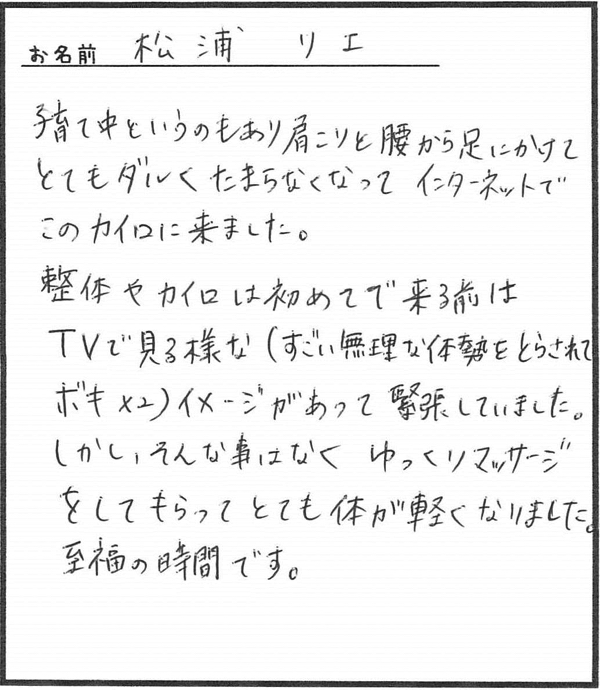 お名前 松浦 リエ
子育て中というのもあり肩こりと腰から足にかけて
とてもダルくたまらなくなって インターネットで
このカイロに来ました。
整体やカイロは初めてで来る前は
TVで見る様な(すごい無理な体勢をとらされて
ボキ×2)イメージがあって緊張していました。
しかし、そんな事はなく ゆっくりマッサージ
をしてもらってとても体が軽くなりました。
至福の時間です。